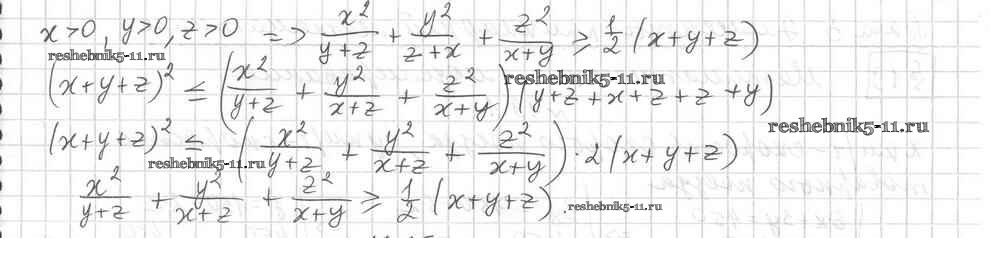 x>0, y>0, z>0 => x²/(y+z) + y²/(z+x) + z²/(x+y) ≥ 1/2 (x+y+z)
reshebnik5-11.ru
(x+y+z)² ≤ (x²/(y+z) + y²/(x+z) + z²/(x+y)) (y+z+x+z+z+y)
reshebnik5-11.ru
reshebnik5-11.ru
(x+y+z)² ≤ (x²/(y+z) + y²/(x+z) + z²/(x+y)) · 2(x+y+z)
reshebnik5-11.ru
x²/(y+z) + y²/(x+z) + z²/(x+y) ≥ 1/2 (x+y+z)
reshebnik5-11.ru